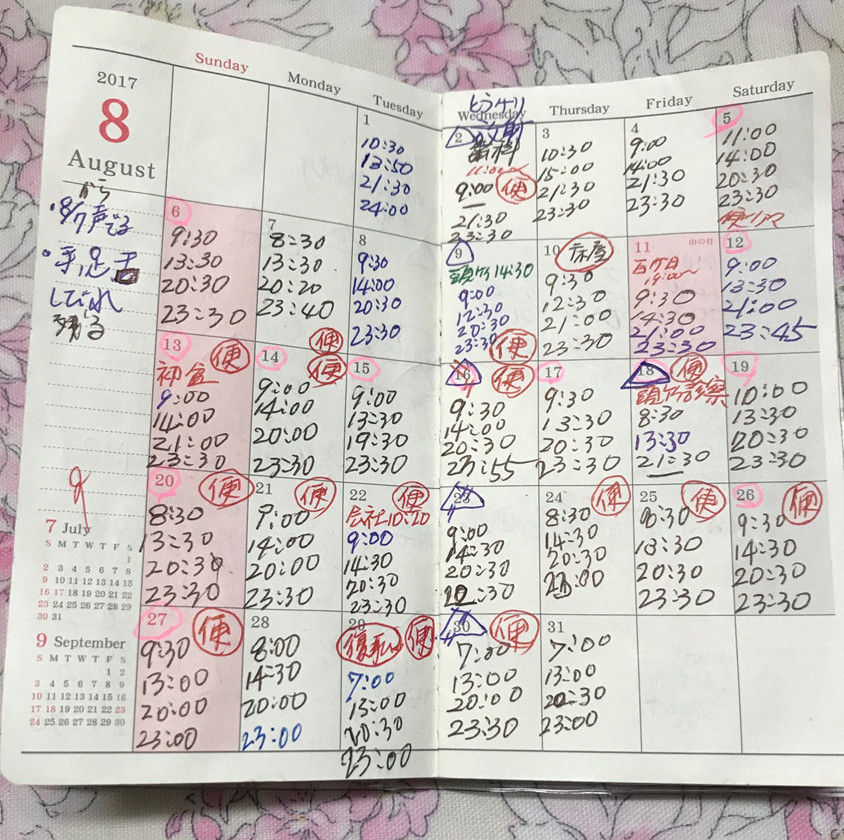 2017
8
August
から
・8/7声でる
・手,足
しびれ
残る
Sunday Monday Tuesday Wednesday Thursday Friday Saturday
1
10:30
13:50
21:30
24:00
2
歯科
9:00 便
21:30
23:30
3
10:30
15:00
21:30
23:30
4
9:00
14:00
21:30
23:30
5
11:00
14:00
20:30
23:30
6
9:30
13:30
20:30
23:30
7
8:30
13:30
20:20
23:40
便
8
9:30
14:00
20:30
23:30
9
14:30
9:00
12:30
20:30
23:30 便
10 床屋
9:30
12:30
21:00
23:30
11 山の日
百ケ日
9:30
14:30
21:00
23:30
12
9:00
13:30
21:00
23:45
13 便
初盆
9:00
14:00
21:00
23:30
14 便
9:00
14:00
20:00
23:30
15
9:00
13:30
19:30
23:30
16 便
9:30
14:00
20:30
23:55
17
9:30
13:30
20:30
23:30
18 便
8:30
13:30
21:30
19
10:00
13:30
20:30
23:30
20 便
8:30
13:30
20:30
23:30
21 便
9:00
14:00
20:00
23:30
22 便
会社10:20
9:00
14:30
20:30
23:30
23
9:00
14:30
20:30
24 便
8:30
14:30
20:30
25 便
13:30
20:30
23:30
26 便
9:30
14:30
20:30
23:30
27 便
9:30
13:00
20:00
23:00
28
8:00
14:30
20:00
23:00
29 便
7:00
13:00
20:30
23:00
30 便
7:00
13:00
20:00
23:30
31
7:00
13:00
20:30
23:00
7 July
S M T W T F S
1
2 3 4 5 6 7 8
9 10 11 12 13 14 15
16 17 18 19 20 21 22
23 24 25 26 27 28 29
30 31
9 September
S M T W T F S
1 2
3 4 5 6 7 8 9
10 11 12 13 14 15 16
17 18 19 20 21 22 23
24 25 26 27 28 29 30